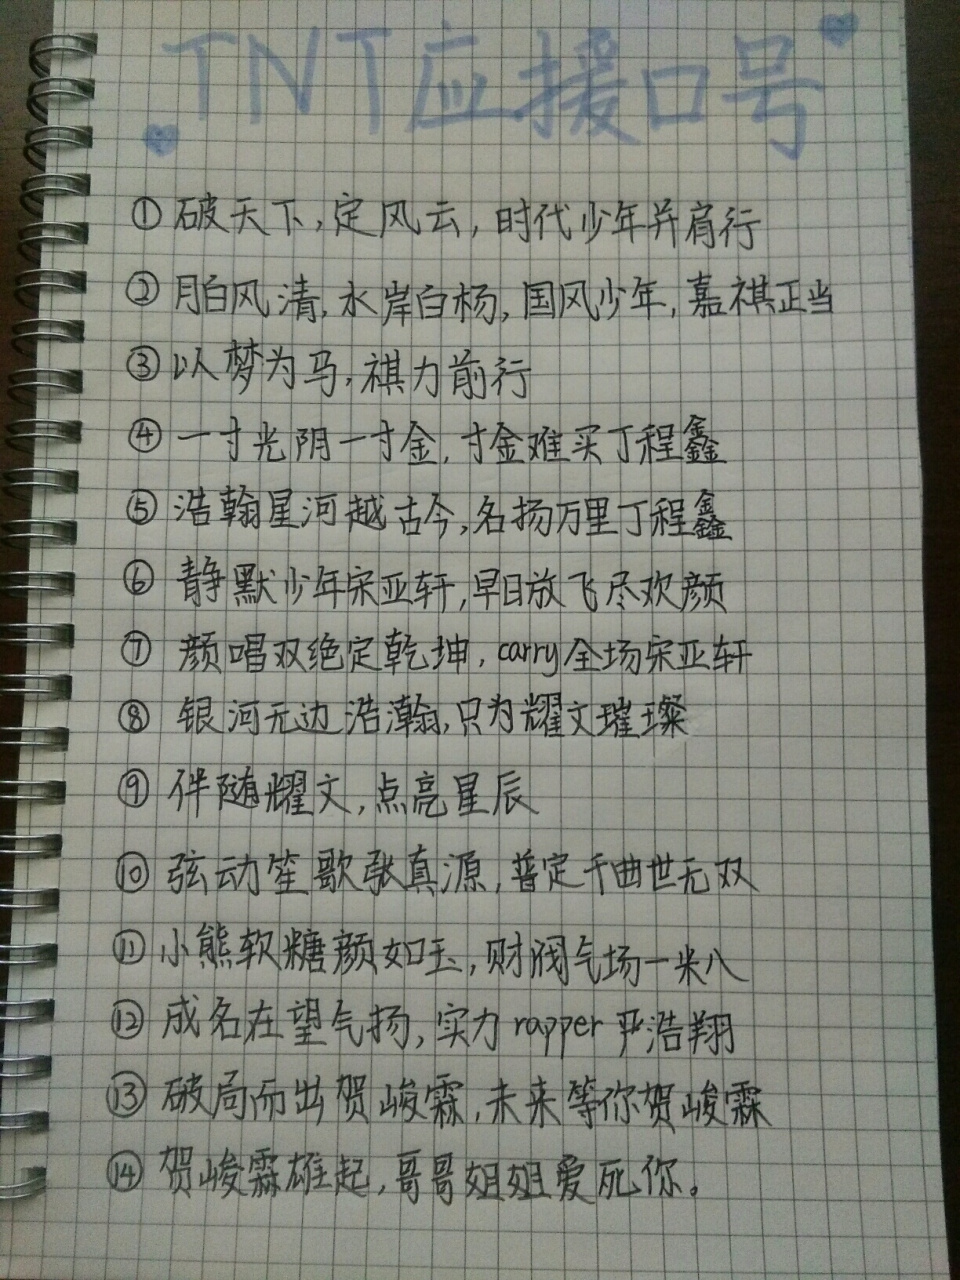 TNT应援口号
①破天下,定风云,时代少年并肩行
②月白风清,水岸白杨,国风少年,嘉祺正当
③以梦为马,祺力前行
④一寸光阴一寸金,寸金难买丁程鑫
⑤浩瀚星河越古今,名扬万里丁程鑫
⑥静默少年宋亚轩,早日放飞尽欢颜
⑦颜唱双绝定乾坤,carry全场宋亚轩
⑧银河无边浩瀚,只为耀文璀璨
⑨伴随耀文,点亮星辰
⑩弦动笙歌张真源,普定千曲世无双
⑪小熊软糖颜如玉,财阀气场一米八
⑫成名在望气扬,实力rapper严浩翔
⑬破局而出贺峻霖,未来等你贺峻霖
⑭贺峻霖雄起,哥哥姐姐爱死你。